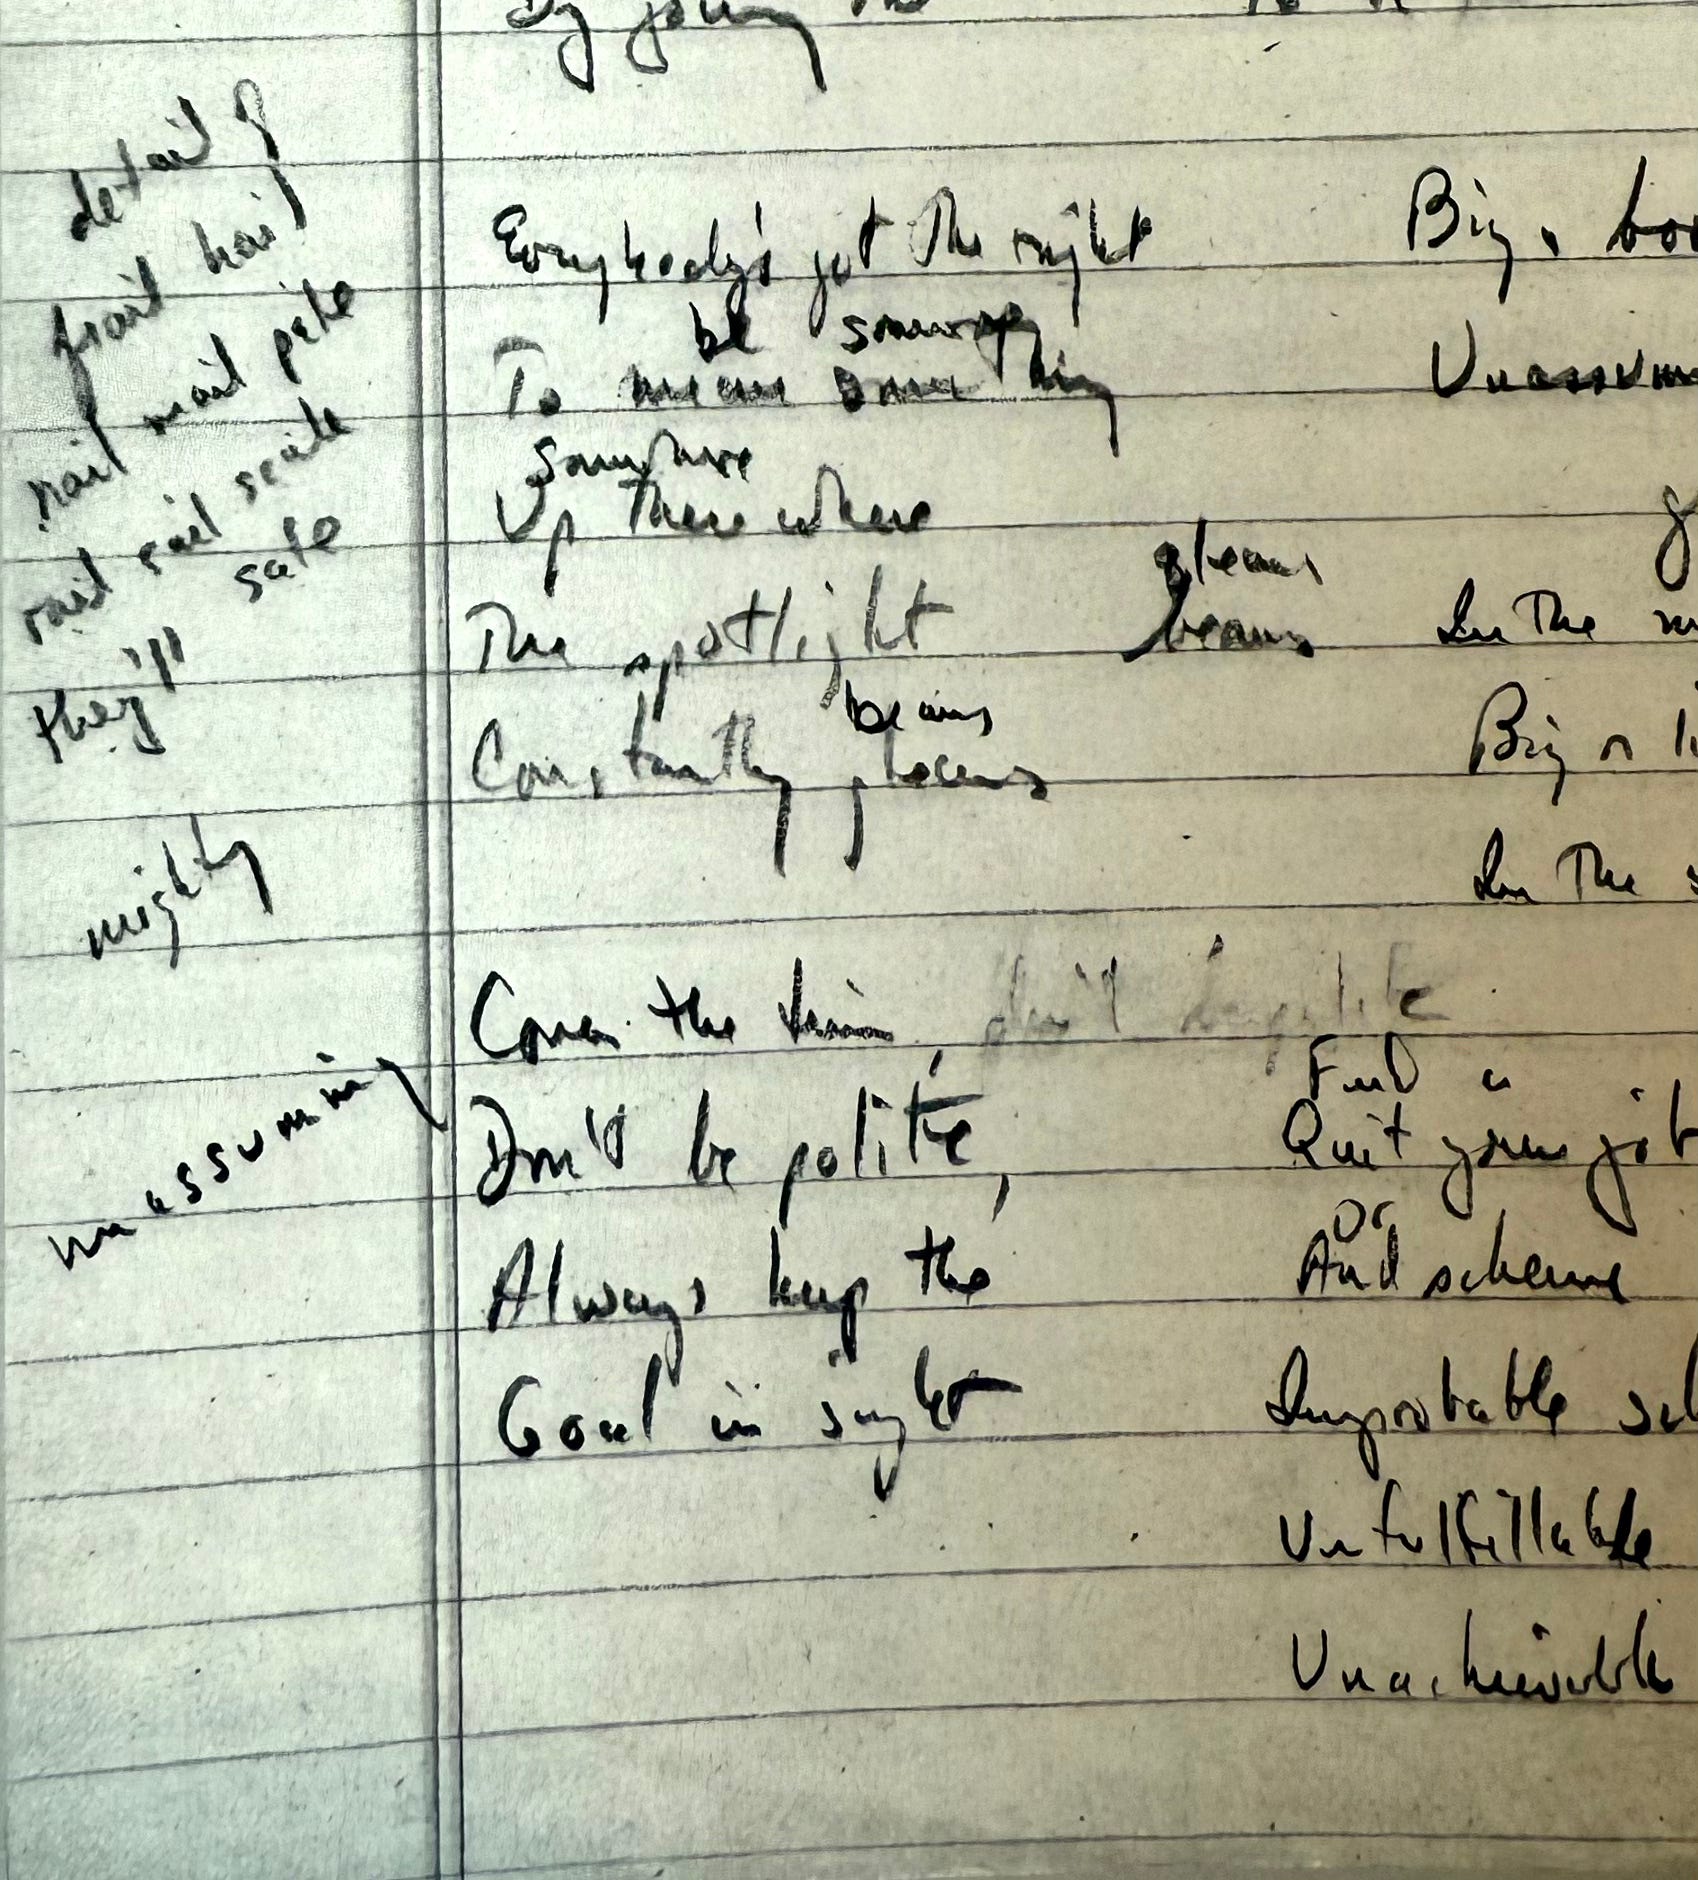 detail
frail hail
nail mail pate
raid sail scale
sate
they'll
mighty
unassuming
Everybody's got the right
be someone
To mean something
somewhere
Up there where
gleams
The spotlight beams
beams
Constantly
the
don't be polite
Don't be polite,
Always keep the
Goal in sight
Big
Unassum
In the
Big
In the
Find a
Quit your job
Or
And scheme
Improbable
Unfulfillable
Unachievable